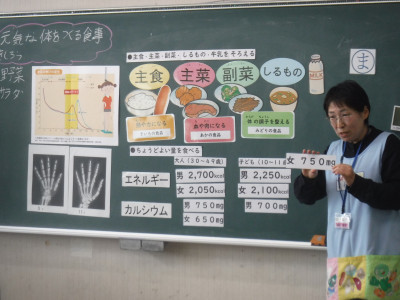 元気な体をつくる食事
野菜
サラダ
●主食・主菜・副菜・しるもの・牛乳をそろえる
主食
主菜
副菜
しるもの
ま
●ちょうどよい量を食べる
大人(30~49歳)
子ども(10~11歳)
エネルギー
男 2,700kcal
男 2,250kcal
女 2,050kcal
女 2,100kcal
カルシウム
男 750mg
男 700mg
女 650mg
女 750mg